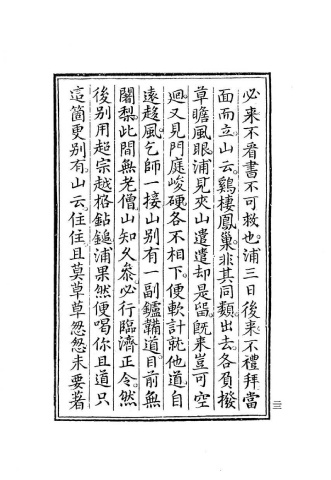 必来不看書不可救也浦三日後来不禮拜當
面而立山云鷄棲鳳巢非其同類出去各負撥
草瞻風眼浦見夾山遣遣却是留既来豈可空
迴又見門庭峻硬各不相下便軟計就他道自
遠趍風乞師一接山别有一副鑪鞴道目前無
闍梨此間無老僧山知久叅必行臨濟正令然
後别用超宗越格鉆鎚浦果然便喝你且道只
這箇更别有山云住住且莫草草怱怱未要著
三